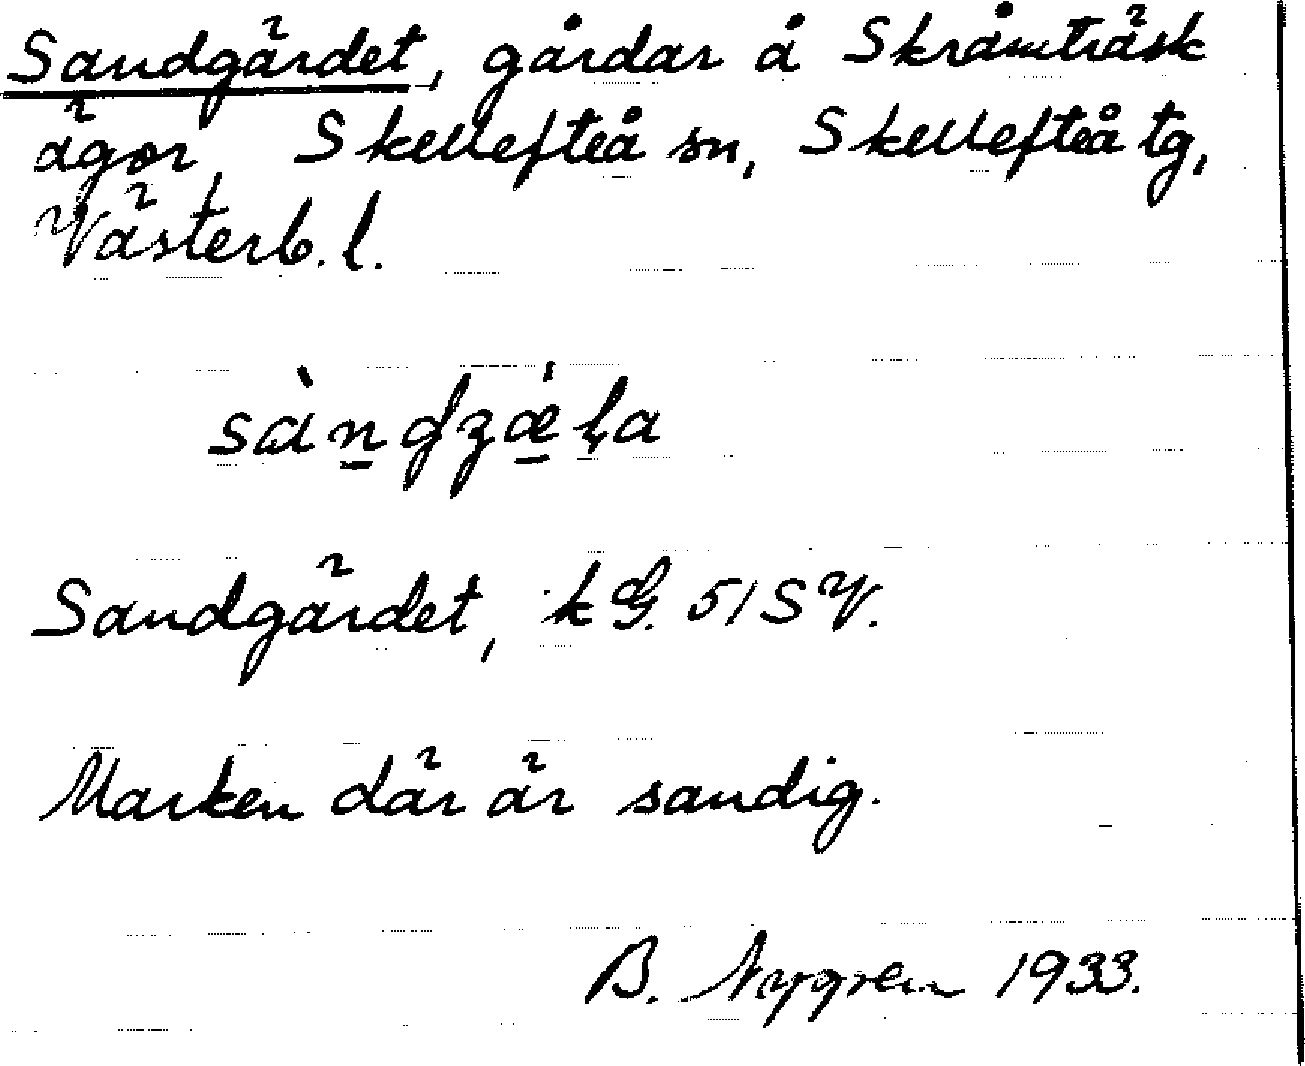 Sandgärdet, gårdar å Skråmträsk
ägor, Skellefteå sn, Skellefteå tg,
Västerb. l.
Sandgärdet, k G. 51 S V.
Marken där är sandig.
B. Nygren 1933.